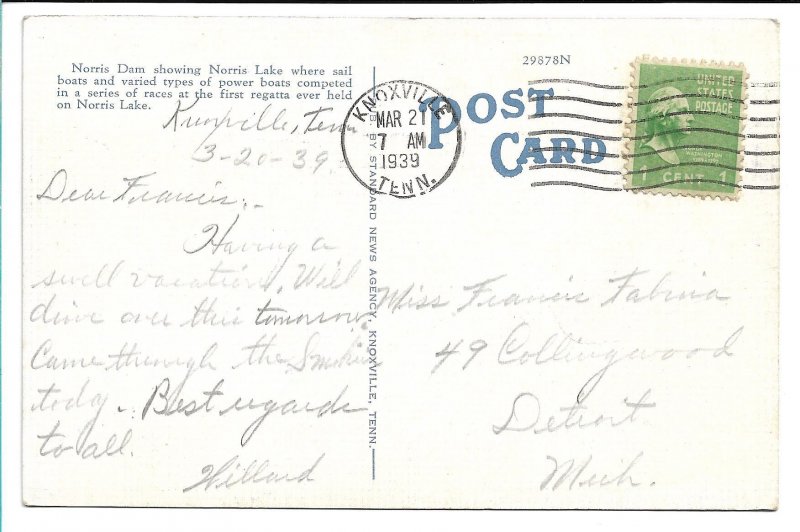 Norris Dam showing Norris Lake where sail
boats and varied types of power boats competed
in a series of races at the first regatta ever held
on Norris Lake.
29878N
POST
CARD
KNOXVILLE
MAR 21
7 AM
1939
TENN.
UNITED
STATES
POSTAGE
WASHINGTON
1 CENT 1
PUB. BY STANDARD NEWS AGENCY, KNOXVILLE, TENN.
Knoxville, Tenn
3-20-39.
Dear Francis,
Having a
swell vacation. Will
drive over this tomorrow.
Came through the Smokies
today. Best regards
to all.
Willard
Miss Francis Fabria
49 Collingwood
Detroit
Mich.